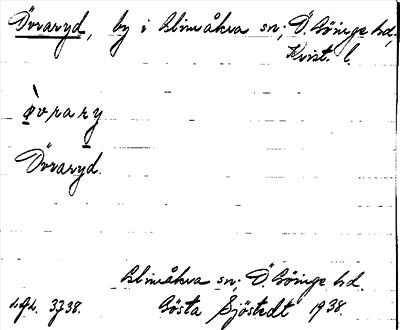 Övraryd, by i Glimåkra sn; Ö. Göinge hd,
Krist. l.
òvrary
Övraryd.
Glimåkra sn; Ö. Göinge hd.
Gösta Sjöstedt 1938.